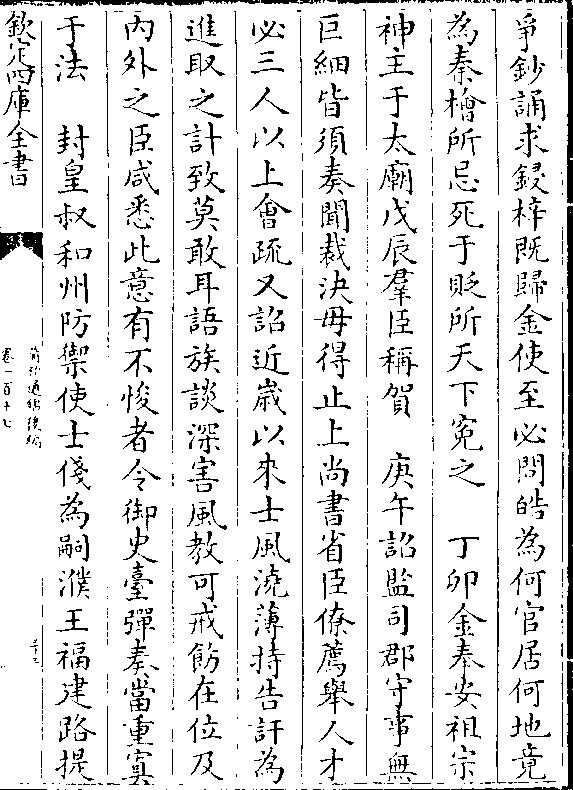 爭鈔誦求鋟梓既歸金使至必問皓為何官居何地竟
為秦檜所忌死于貶所天下寃之　丁卯金奉安祖宗
神主于太廟戊辰羣臣稱賀　庚午詔監司郡守事無
巨細皆須奏聞裁決毋得止上尚書省臣僚薦舉人才
必三人以上會疏又詔近歲以來士風澆薄持告訐為
進取之計致莫敢耳語族談深害風教可戒飭在位及
內外之臣咸悉此意有不悛者令御史臺彈奏當重寘
于法　封皇叔和州防禦使士俴為嗣濮王福建路提
欽定四庫全書
資治通鑑後編
卷一百十七
二十三